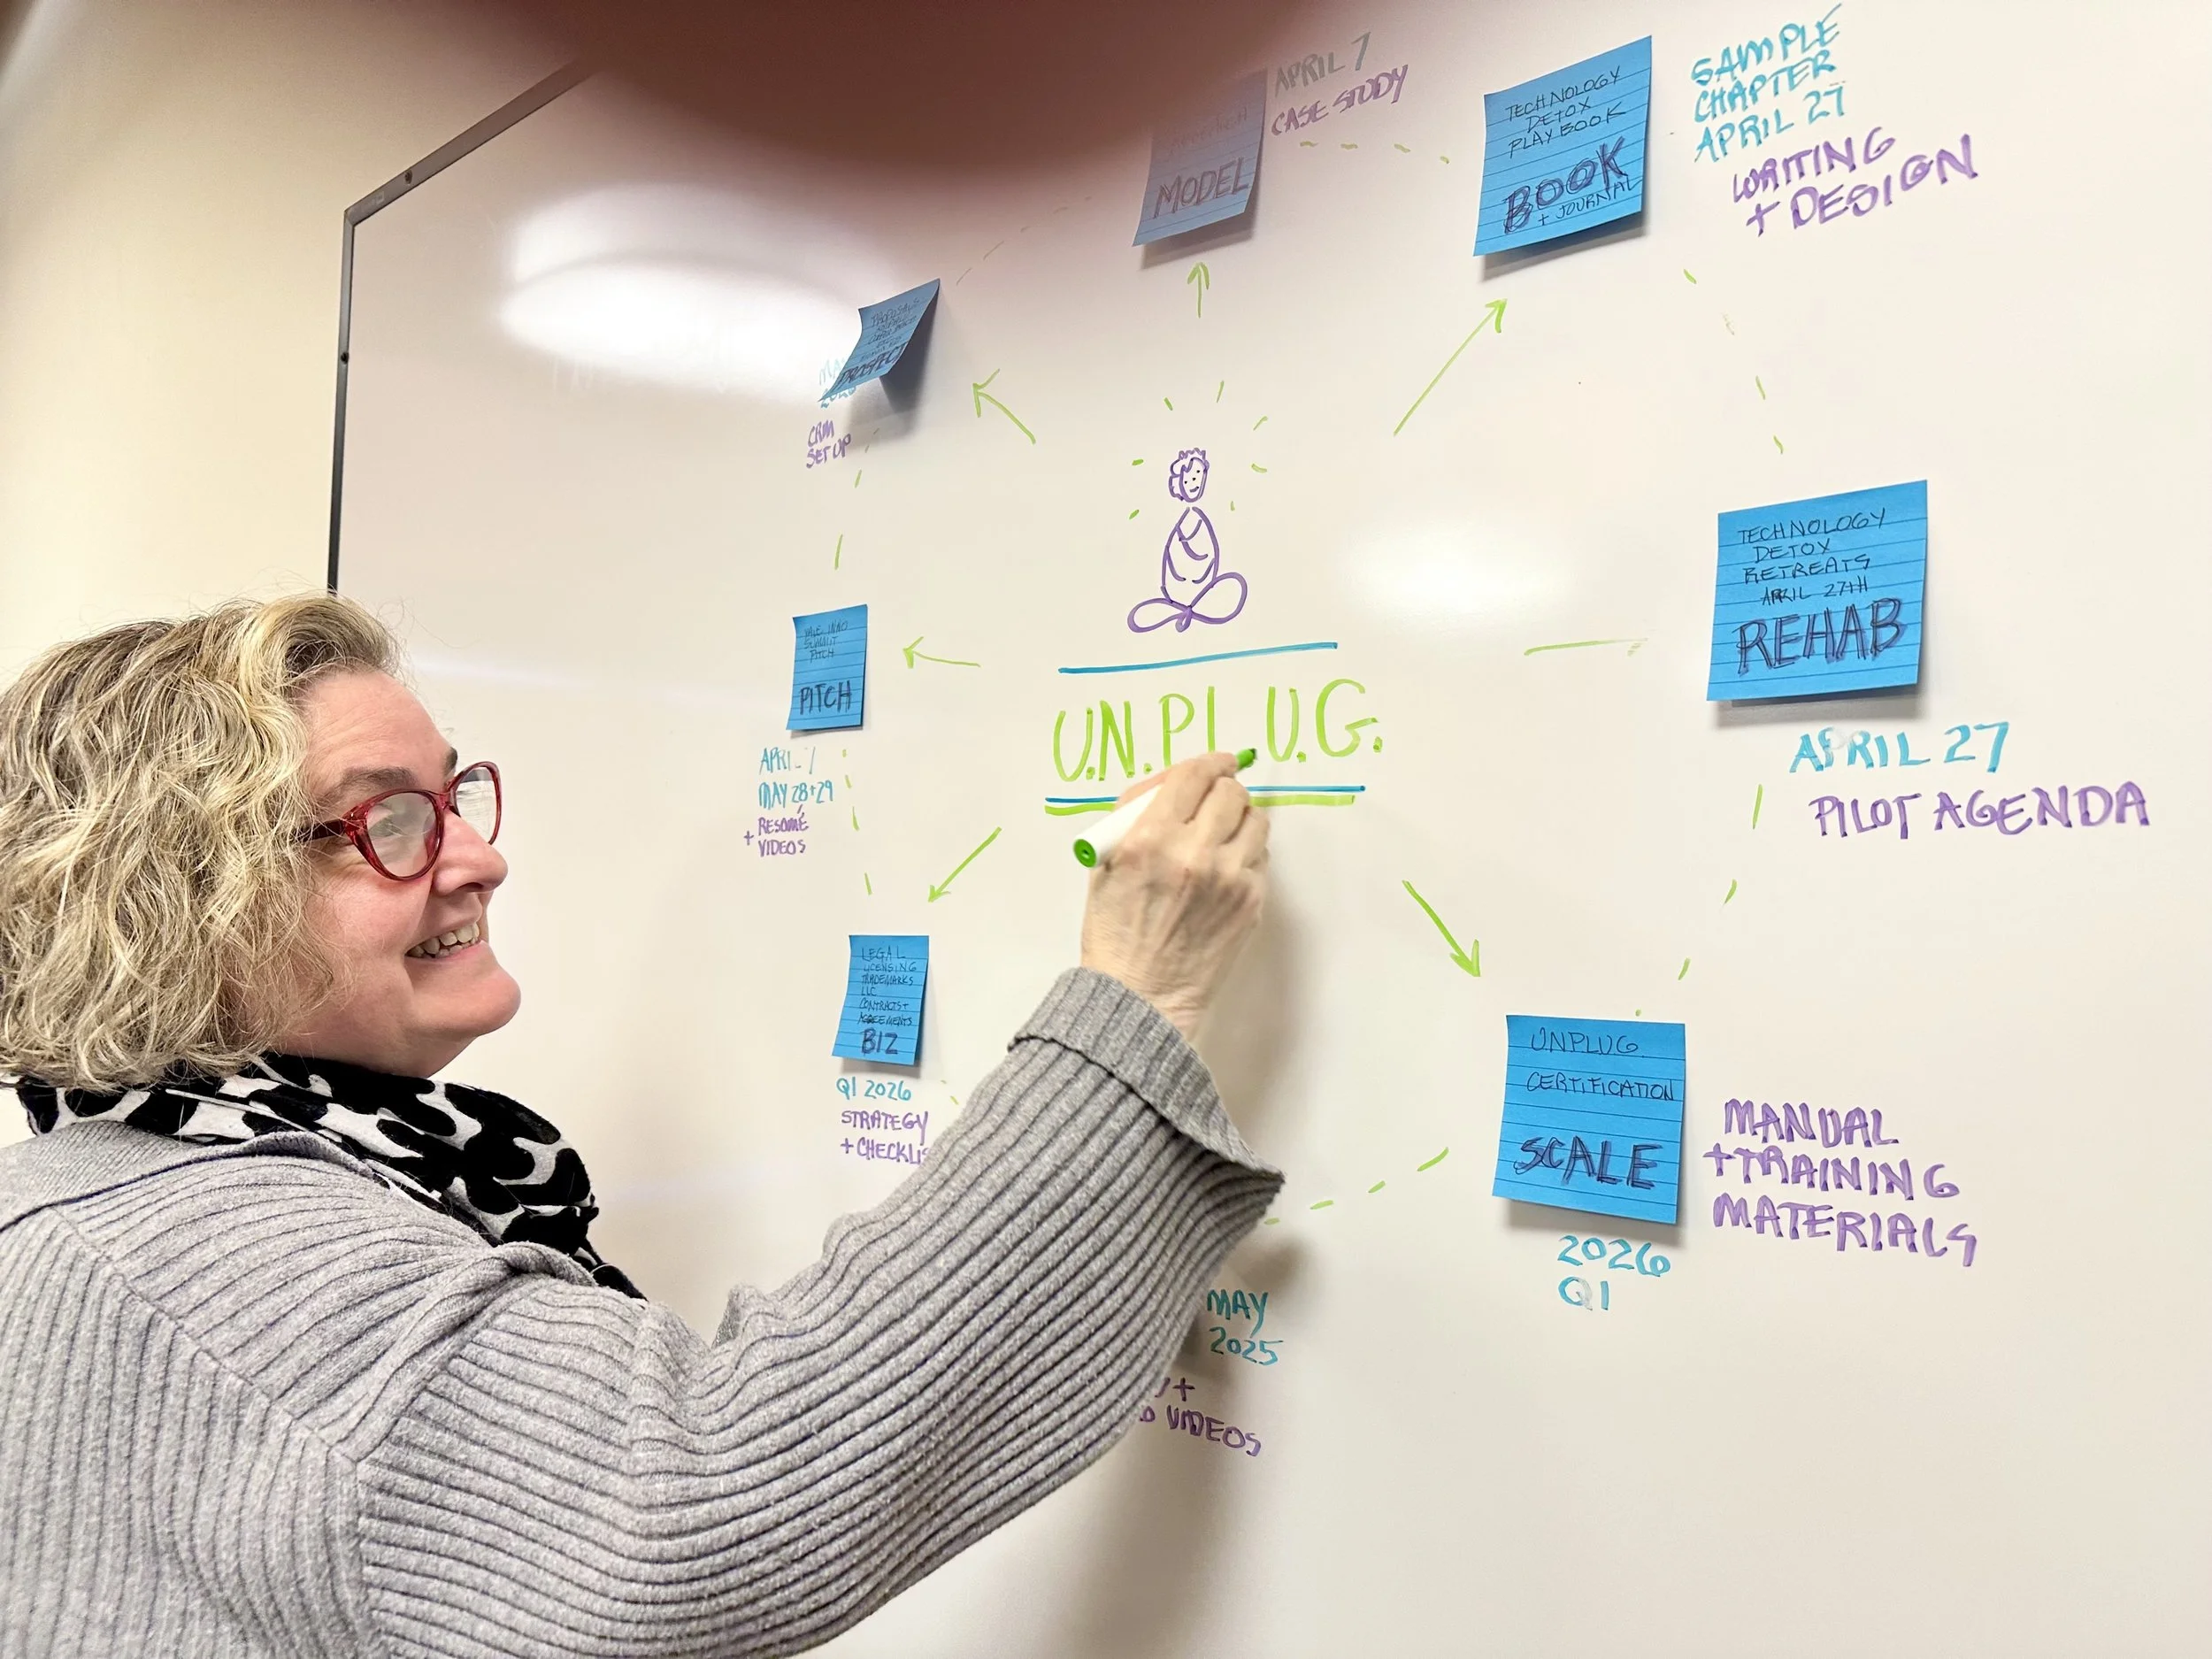 APRIL 7
CASE STUDY
MODEL
TECHNOLOGY
DETOX
PLAYBOOK
BOOK
+ JOURNAL
SAMPLE
CHAPTER
APRIL 27
WRITING
+ DESIGN
PROSPECT
CRM
SET UP
TECHNOLOGY
DETOX
RETREATS
APRIL 27TH
REHAB
APRIL 27
PILOT AGENDA
SUMMIT
PITCH
PITCH
APRIL 7
MAY 28+29
+ RESUMÉ
VIDEOS
U.N.P L U.G.
LEGAL
LICENSING
TRADEMARKS
LLC
CONTRACTS+
AGREEMENTS
BIZ
Q1 2026
STRATEGY
+ CHECKLIS
UNPLUG
CERTIFICATION
SCALE
MANUAL
+TRAINING
MATERIALS
2026
Q1
MAY
2025
+
VIDEOS